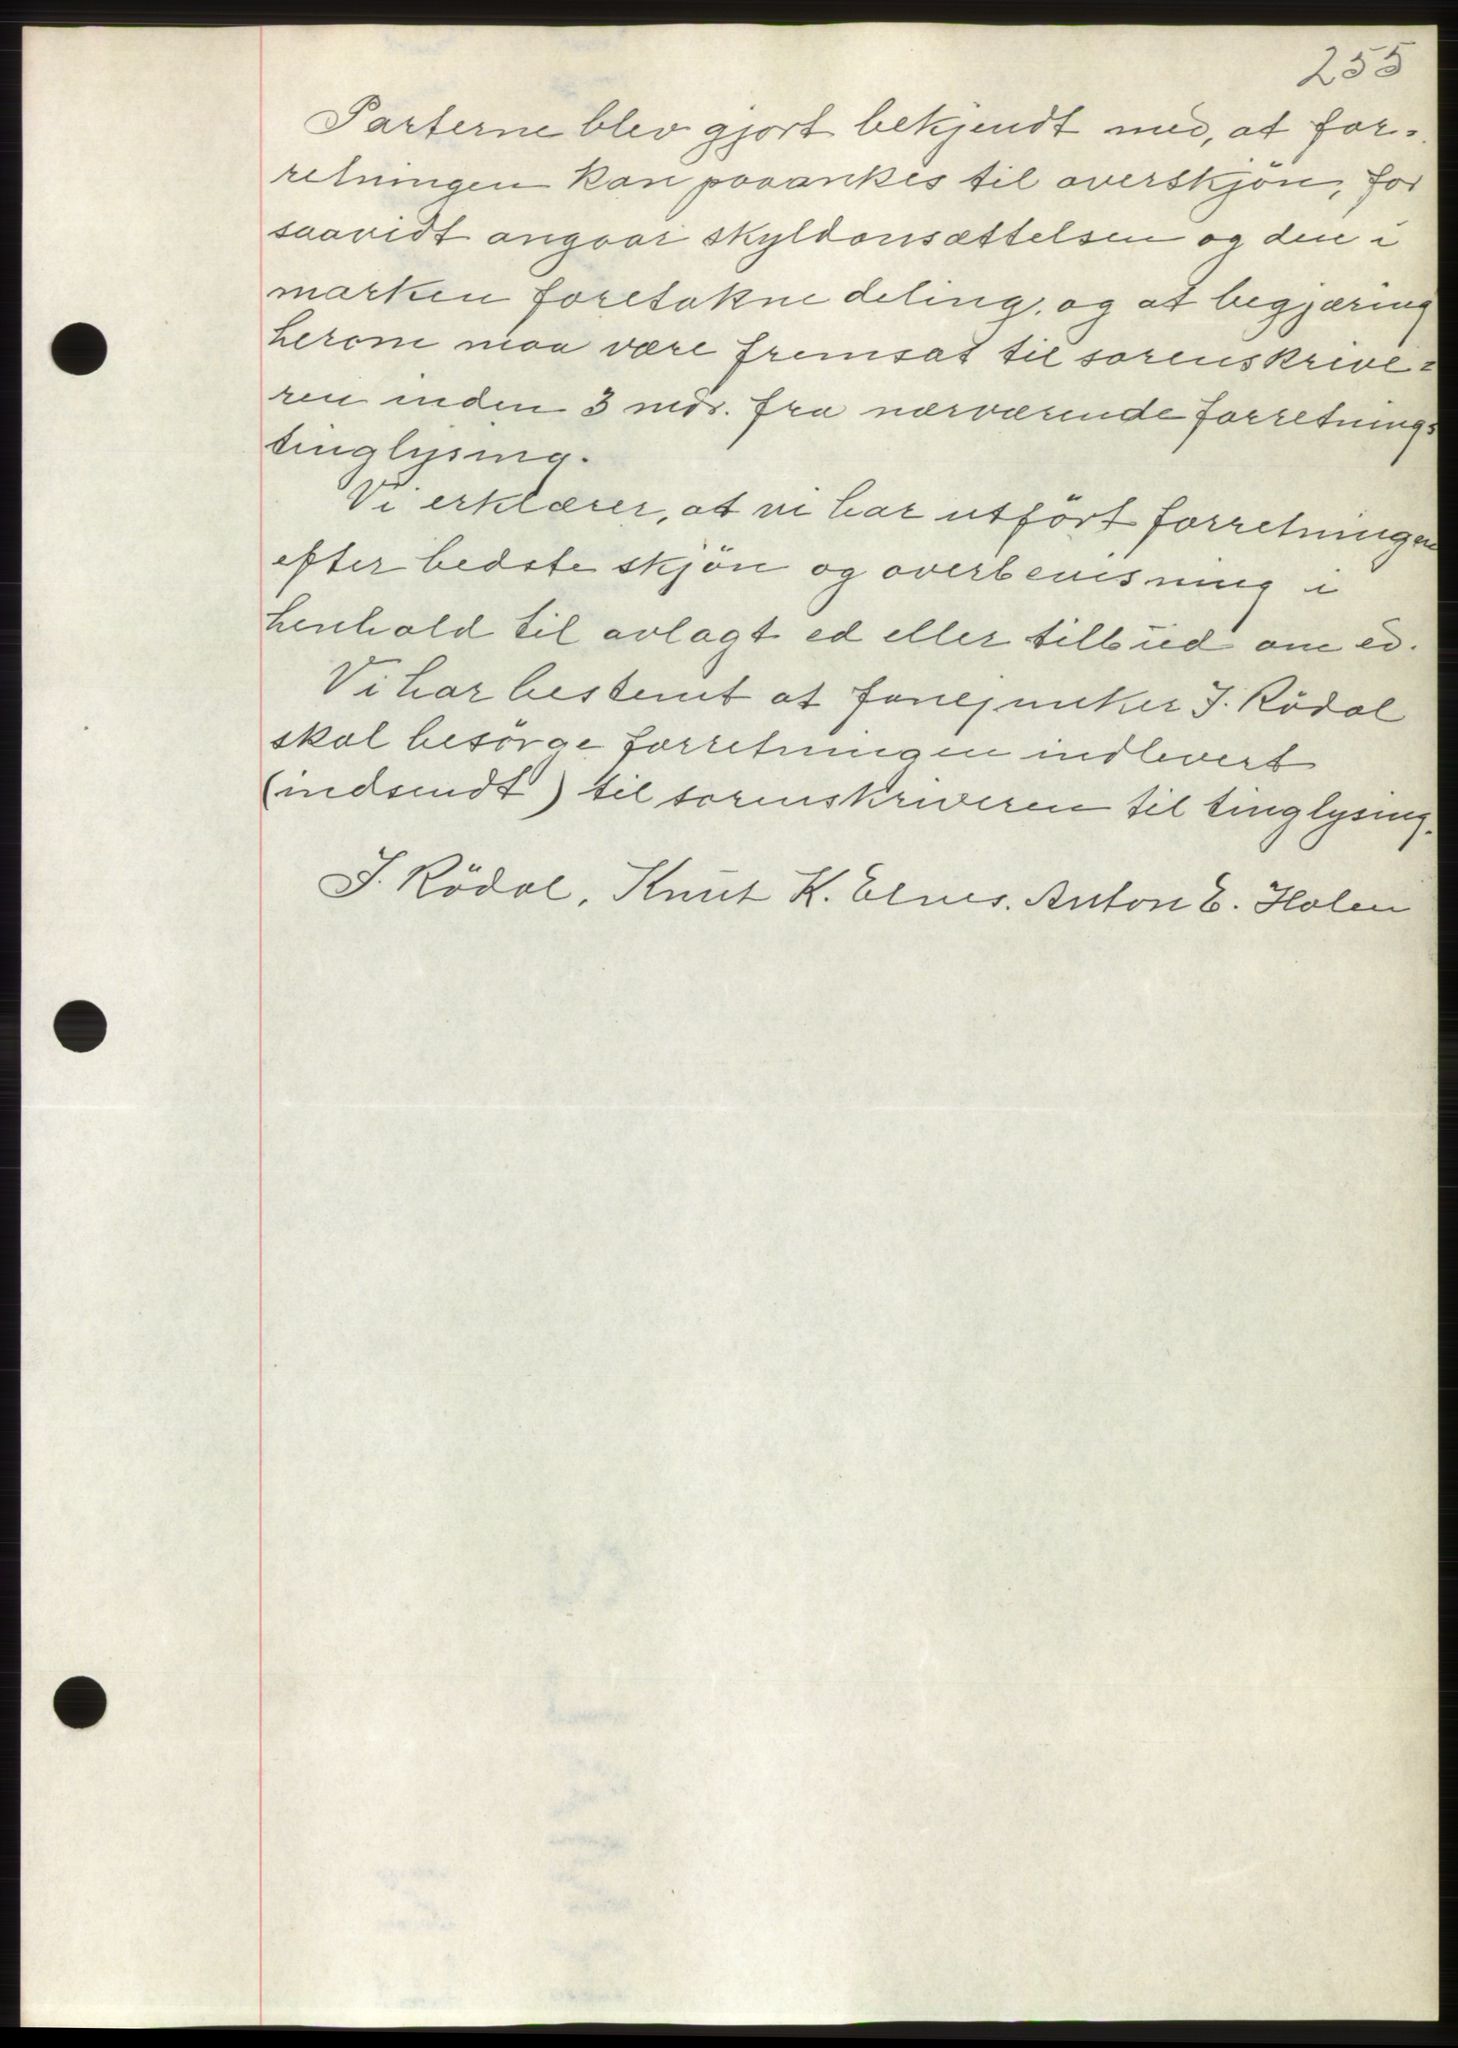 255
Parterne blev gjort bekjendt med, at for-
retningen kan paaankes til overskjön, for
saavidt angaar skyldansættelsen og den i
marken foretakne deling, og at begjæring
herom maa være fremsat til sorenskrive-
ren inden 3 mdr. fra nærværende forretnings
tinglysing.
Vi erklærer, at vi har utfört forretningen
efter bedste skjön og overbevisning i
henhold til avlagt ed eller tilbud om ed.
Vi har bestemt at fanejunker J. Rödal
skal besörge forretningen indlevert
(indsendt) til sorenskriveren til tinglysing.
J. Rödal, Knut K. Elnes. Anton E. Holen